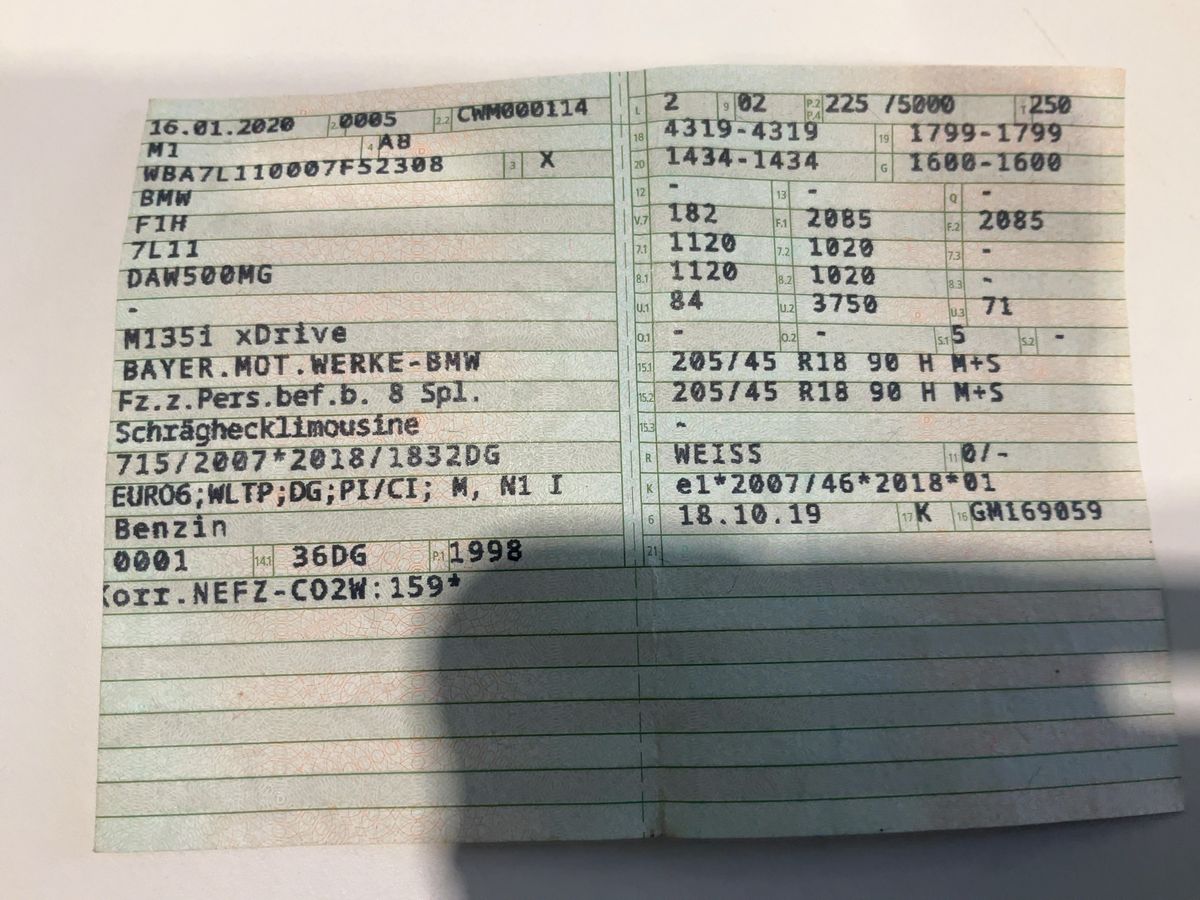 16.01.2020 2.1 0005 2.2 CWM000114
M1 4 A8
WBA7L110007F52308 3 X
BMW
F1H
7L11
DAW500MG
-
M135i xDrive
BAYER.MOT.WERKE-BMW
Fz.z.Pers.bef.b. 8 Spl.
Schräghecklimousine
715/2007*2018/1832DG
EURO6;WLTP;DG;PI/CI; M, N1 I
Benzin
0001 14.1 36DG P.1 1998
Korr.NEFZ-CO2W:159*
L 2 9 02 P.2 P.4 225 /5000 T 250
18 4319-4319 19 1799-1799
20 1434-1434 G 1600-1600
12 - 13 - Q -
V.7 182 F.1 2085 F.2 2085
7.1 1120 7.2 1020 7.3 -
8.1 1120 8.2 1020 8.3 -
U.1 84 U.2 3750 U.3 71
O.1 - O.2 - S.1 5 S.2 -
15.1 205/45 R18 90 H M+S
15.2 205/45 R18 90 H M+S
15.3 -
R WEISS 11 0/-
K e1*2007/46*2018*01
6 18.10.19 17 K 16 GM169059
21